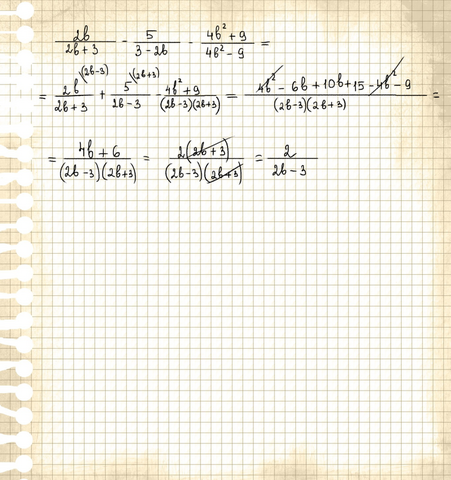 2b/(2b+3) - 5/(3-2b) - (4b²+9)/(4b²-9) =
= 2b^(2b-3)/(2b+3) + 5^(2b+3)/(2b-3) - (4b²+9)/((2b-3)(2b+3)) = (4b² - 6b + 10b + 15 - 4b² - 9)/((2b-3)(2b+3)) =
= (4b+6)/((2b-3)(2b+3)) = 2(2b+3)/((2b-3)(2b+3)) = 2/(2b-3)